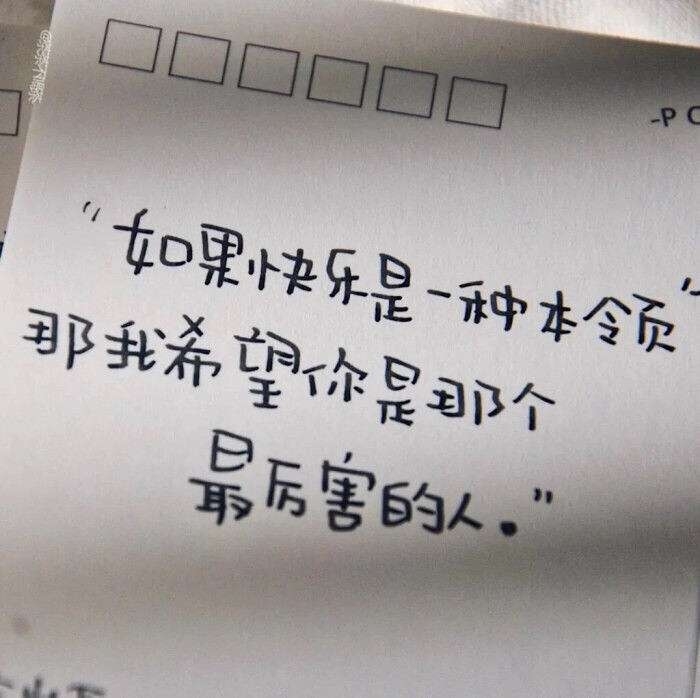 -P
“如果快乐是一种本领”
那我希望你是那个
最厉害的人。”